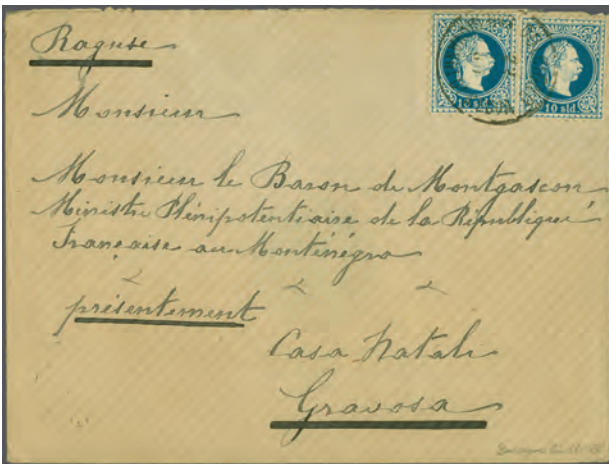 Raguse
10 sld
10 sld
Monsieur
Monsieur le Baron de Montgascon
Ministre Plénipotentiaire de la République
Française au Monténégro
présentement
Casa Natali
Gravosa